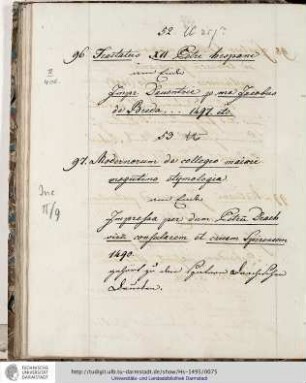 52
96. Tractatus XII Petri hispani
am Ende
Impr. Daventrie p. me Jacobus
de Breda... 1497. 4to.
53
97. Modernorum de collegio maiori
moguntino etymologia
am Ende
Inc
II/9
Impressa per dum Petrū Drach
virū consularem et civem Spirensem
1490.
gehört zu den
TECHNISCHE
UNIVERSITÄT
DARMSTADT
http://tudigit.ulb.tu-darmstadt.de/show/Hs-1495/0075
Universitäts- und Landesbibliothek Darmstadt